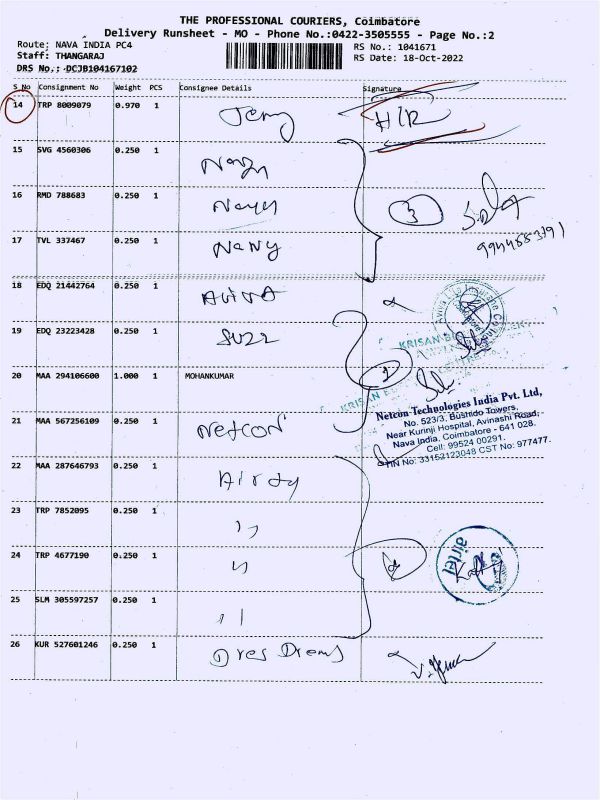 THE PROFESSIONAL COURIERS, Coimbatore
Delivery Runsheet - MO - Phone No.:0422-3505555 - Page No.:2
Route: NAVA INDIA PC4 RS No.: 1041671
Staff: THANGARAJ RS Date: 18-Oct-2022
DRS No.: DCJB104167102
S No Consignment No Weight PCS Consignee Details Signature
14 TRP 8009079 0.970 1 Jemy H/R
15 SVG 4560306 0.250 1
16 RMD 788683 0.250 1 3
17 TVL 337467 0.250 1
18 EDQ 21442764 0.250 1 AVIVA
19 EDQ 23223428 0.250 1
20 MAA 294106600 1.000 1 MOHANKUMAR
21 MAA 567256109 0.250 1 Netcon
Netcon Technologies India Pvt. Ltd,
No. 523/3, Bushido Towers,
Near Kurinji Hospital, Avinashi Road,
Nava India, Coimbatore - 641 028.
Cell: 99524 00291.
TIN No: 33152123048 CST No: 977477.
22 MAA 287646793 0.250 1
23 TRP 7852095 0.250 1 ,,
24 TRP 4677190 0.250 1 ,, airtel
25 SLM 305597257 0.250 1 ,,
26 KUR 527601246 0.250 1